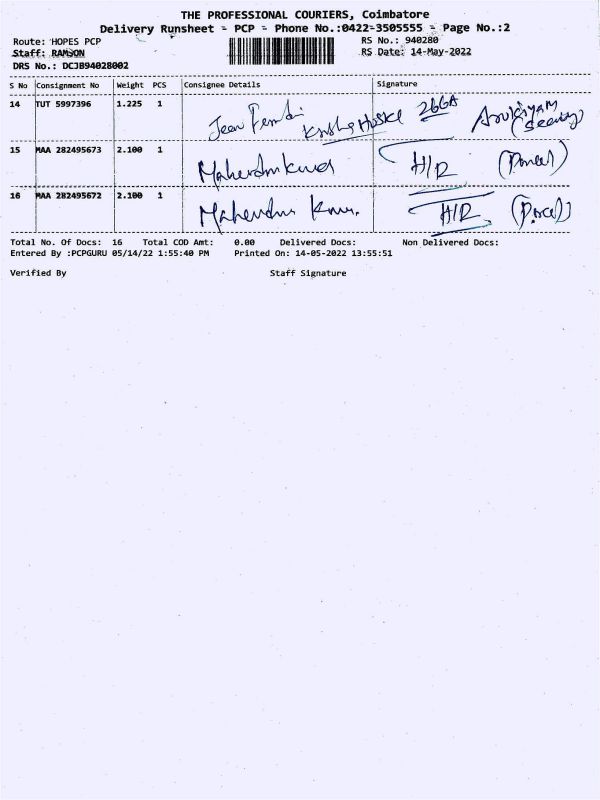 THE PROFESSIONAL COURIERS, Coimbatore
Delivery Runsheet - PCP - Phone No.:0422-3505555 - Page No.:2
Route: HOPES PCP RS No.: 940280
Staff: RAMSON RS Date: 14-May-2022
DRS No.: DCJB94028002
S No Consignment No Weight PCS Consignee Details Signature
14 TUT 5997396 1.225 1 266A
15 MAA 282495673 2.100 1 H/R
16 MAA 282495672 2.100 1 H/R
Total No. Of Docs: 16 Total COD Amt: 0.00 Delivered Docs: Non Delivered Docs:
Entered By :PCPGURU 05/14/22 1:55:40 PM Printed On: 14-05-2022 13:55:51
Verified By Staff Signature